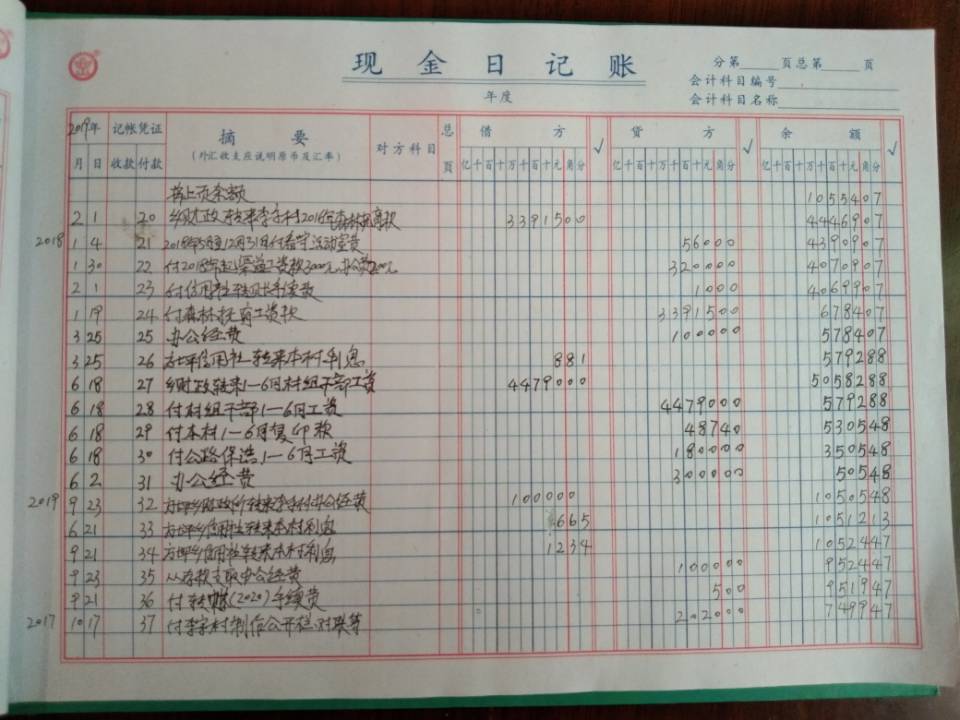 现金日记账
年度
分第 页总第 页
会计科目编号
会计科目名称
2019年 记帐凭证 摘要 对方科目 总页 借方 √ 贷方 √ 余额 √
月 日 收款 付款 (外汇收支应说明原币及汇率) 亿千百十万千百十元角分 亿千百十万千百十元角分 亿千百十万千百十元角分
接上页余额 1055407
2 1 20 乡财政转来李子村2018 款 3391500 4446907
2018 1 4 21 2018年5月至12月31日付 活动室费 56000 4390907
1 30 22 付2018年 工资款3000元办公费200元 320000 4070907
2 1 23 付信用社转账手续费 1000 4069907
1 19 24 付森林 工资款 3391500 678407
3 25 25 办公经费 100000 578407
3 25 26 方坪信用社转来本村利息 881 579288
6 18 27 乡财政转来1—6月村组干部工资 4479000 5058288
6 18 28 付村组干部1—6月工资 4479000 579288
6 18 29 付本村1—6月复印款 48740 530548
6 18 30 付公路保洁1—6月工资 180000 350548
6 2 31 办公经费 300000 50548
2019 9 23 32 方坪乡财政所转来李子村办公经费 100000 1050548
6 21 33 方坪乡信用社转来本村利息 665 1051213
9 21 34 方坪乡信用社转来本村利息 1234 1052447
9 23 35 从存款支取办公经费 100000 952447
9 21 36 付转账(2020)手续费 500 951947
2017 10 17 37 付李子村制作公开栏对联等 202000 749947